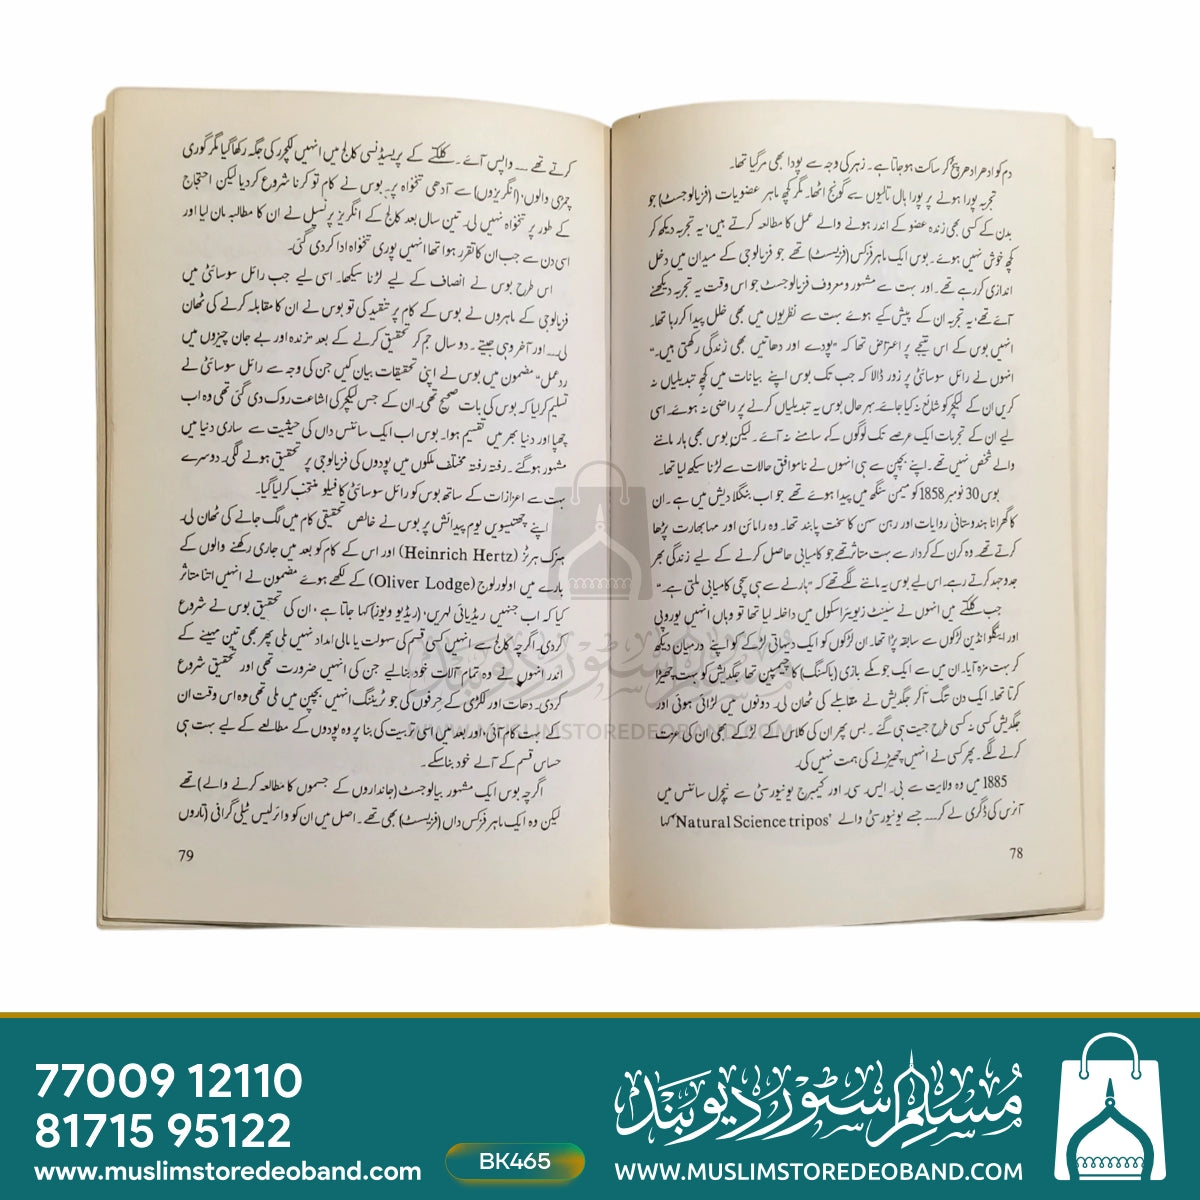 دم کو ادھر ادھر پٹخ کر ساکت ہو جاتا ہے۔ زہر کی وجہ سے پودا بھی مر گیا تھا۔
تجربہ پورا ہونے پر پورا ہال تالیوں سے گونج اٹھا۔ مگر کچھ ماہر عضویات (فزیالوجسٹ) جو
بدن کے کسی بھی زندہ عضو کے اندر ہونے والے عمل کا مطالعہ کرتے ہیں، یہ تجربہ دیکھ کر
کچھ خوش نہیں ہوئے۔ بوس ایک ماہر فزکس (فزیسٹ) تھے جو فزیالوجی کے میدان میں دخل
اندازی کر رہے تھے۔ اور بہت سے مشہور و معروف فزیالوجسٹ جو اس وقت یہ تجربہ دیکھنے
آئے تھے، یہ تجربہ ان کے پیش کیے ہوئے بہت سے نظریوں میں بھی خلل پیدا کر رہا تھا۔
انہیں بوس کے اس نتیجے پر اعتراض تھا کہ "پودے اور دھاتیں بھی زندگی رکھتی ہیں۔"
انہوں نے رائل سوسائٹی پر زور ڈالا کہ جب تک بوس اپنے بیانات میں کچھ تبدیلیاں نہ
کریں ان کے لیکچر کو شائع نہ کیا جائے۔ بہر حال بوس یہ تبدیلیاں کرنے پر راضی نہ ہوئے۔ اسی
لیے ان کے تجربات ایک عرصے تک لوگوں کے سامنے نہ آئے۔ لیکن بوس بھی ہار ماننے
والے شخص نہیں تھے۔ اپنے بچپن سے ہی انہوں نے ناموافق حالات سے لڑنا سیکھ لیا تھا۔
بوس 30 نومبر 1858 کو میمن سنگھ میں پیدا ہوئے تھے جو اب بنگلا دیش میں ہے۔ ان
کا گھرانا ہندوستانی روایات اور رہن سہن کا سخت پابند تھا۔ وہ رامائن اور مہابھارت پڑھا
کرتے تھے۔ وہ کرن کے کردار سے بہت متاثر تھے جو کامیابی حاصل کرنے کے لیے زندگی بھر
جدوجہد کرتے رہے۔ اس لیے بوس یہ ماننے لگے تھے کہ "ہارنے سے ہی سچی کامیابی ملتی ہے۔"
جب کلکتے میں انہوں نے سینٹ زیویئر اسکول میں داخلہ لیا تھا تو وہاں انہیں یوروپی
اور اینگلو انڈین لڑکوں سے سابقہ پڑا تھا۔ ان لڑکوں کو ایک دیہاتی لڑکے کو اپنے درمیان دیکھ
کر بہت مزہ آیا۔ ان میں سے ایک جو مکے بازی (باکسنگ) کا چیمپین تھا، جگدیش کو بہت چھیڑا
کرتا تھا۔ ایک دن تنگ آ کر جگدیش نے مقابلے کی ٹھان لی۔ دونوں میں لڑائی ہوئی اور
جگدیش کسی نہ کسی طرح جیت ہی گئے۔ بس پھر ان کی کلاس کے لڑکے بھی ان کی عزت
کرنے لگے۔ پھر کسی نے انہیں چھیڑنے کی ہمت نہیں کی۔
1885 میں وہ ولایت سے بی۔ ایس۔ سی۔ اور کیمبرج یونیورسٹی سے نیچرل سائنس میں
آنرس کی ڈگری لے کر... جسے یونیورسٹی والے 'Natural Science tripos' کہا
78
کرتے تھے ... واپس آئے۔ کلکتے کے پریسیڈنسی کالج میں انہیں لکچرر کی جگہ رکھا گیا مگر گوری
چمڑی والوں، (انگریزوں) سے آدھی تنخواہ پر۔ بوس نے کام تو کرنا شروع کر دیا لیکن احتجاج
کے طور پر تنخواہ نہیں لی۔ تین سال بعد کالج کے انگریز پرنسپل نے ان کا مطالبہ مان لیا اور
اسی دن سے جب ان کا تقرر ہوا تھا انہیں پوری تنخواہ ادا کر دی گئی۔
اس طرح بوس نے انصاف کے لیے لڑنا سیکھا۔ اسی لیے جب رائل سوسائٹی میں
فزیالوجی کے ماہروں نے بوس کے کام پر تنقید کی تو بوس نے ان کا مقابلہ کرنے کی ٹھان
لی... اور آخر وہی جیتے۔ دو سال جم کر تحقیق کرنے کے بعد "زندہ اور بے جان چیزوں میں
رد عمل" مضمون میں بوس نے اپنی تحقیقات بیان کیں جن کی وجہ سے رائل سوسائٹی نے
تسلیم کر لیا کہ بوس کی بات صحیح تھی۔ ان کے جس لیکچر کی اشاعت روک دی گئی تھی وہ اب
چھپا اور دنیا بھر میں تقسیم ہوا۔ بوس اب ایک سائنس داں کی حیثیت سے ساری دنیا میں
مشہور ہو گئے۔ رفتہ رفتہ مختلف ملکوں میں پودوں کی فزیالوجی پر تحقیق ہونے لگی۔ دوسرے
بہت سے اعزازات کے ساتھ بوس کو رائل سوسائٹی کا فیلو منتخب کر لیا گیا۔
اپنے چھتیسویں یوم پیدائش پر بوس نے خالص تحقیقی کام میں لگ جانے کی ٹھان لی۔
ہنرک ہرٹز (Heinrich Hertz) اور اس کے کام کو بعد میں جاری رکھنے والوں کے
بارے میں اولور لوج (Oliver Lodge) کے لکھے ہوئے مضمون نے انہیں اتنا متاثر
کیا کہ اب جنہیں ریڈیائی لہریں، (ریڈیو ویوز) کہا جاتا ہے، ان کی تحقیق بوس نے شروع
کر دی۔ اگرچہ کالج سے انہیں کسی قسم کی سہولت یا مالی امداد نہیں ملی پھر بھی تین مہینے کے
اندر انہوں نے وہ تمام آلات خود بنا لیے جن کی انہیں ضرورت تھی اور تحقیق شروع
کر دی۔ دھات اور لکڑی کے حرفوں کی جو ٹریننگ انہیں بچپن میں ملی تھی، وہ اس وقت ان
کے بہت کام آئی، اور بعد میں اسی تربیت کی بنا پر وہ پودوں کے مطالعے کے لیے بہت ہی
حساس قسم کے آلے خود بنا سکے۔
اگرچہ بوس ایک مشہور بیالوجسٹ (جانداروں کے جسموں کا مطالعہ کرنے والے) تھے
لیکن وہ ایک ماہر فزکس داں (فزیسٹ) بھی تھے۔ اصل میں ان کو وائرلیس ٹیلی گرافی (تاروں
79
مسلم سٹور دیوبند
WWW.MUSLIMSTOREDEOBAND.COM
77009 12110
81715 95122
www.muslimstoredeoband.com
BK465
مسلم سٹور دیوبند
WWW.MUSLIMSTOREDEOBAND.COM